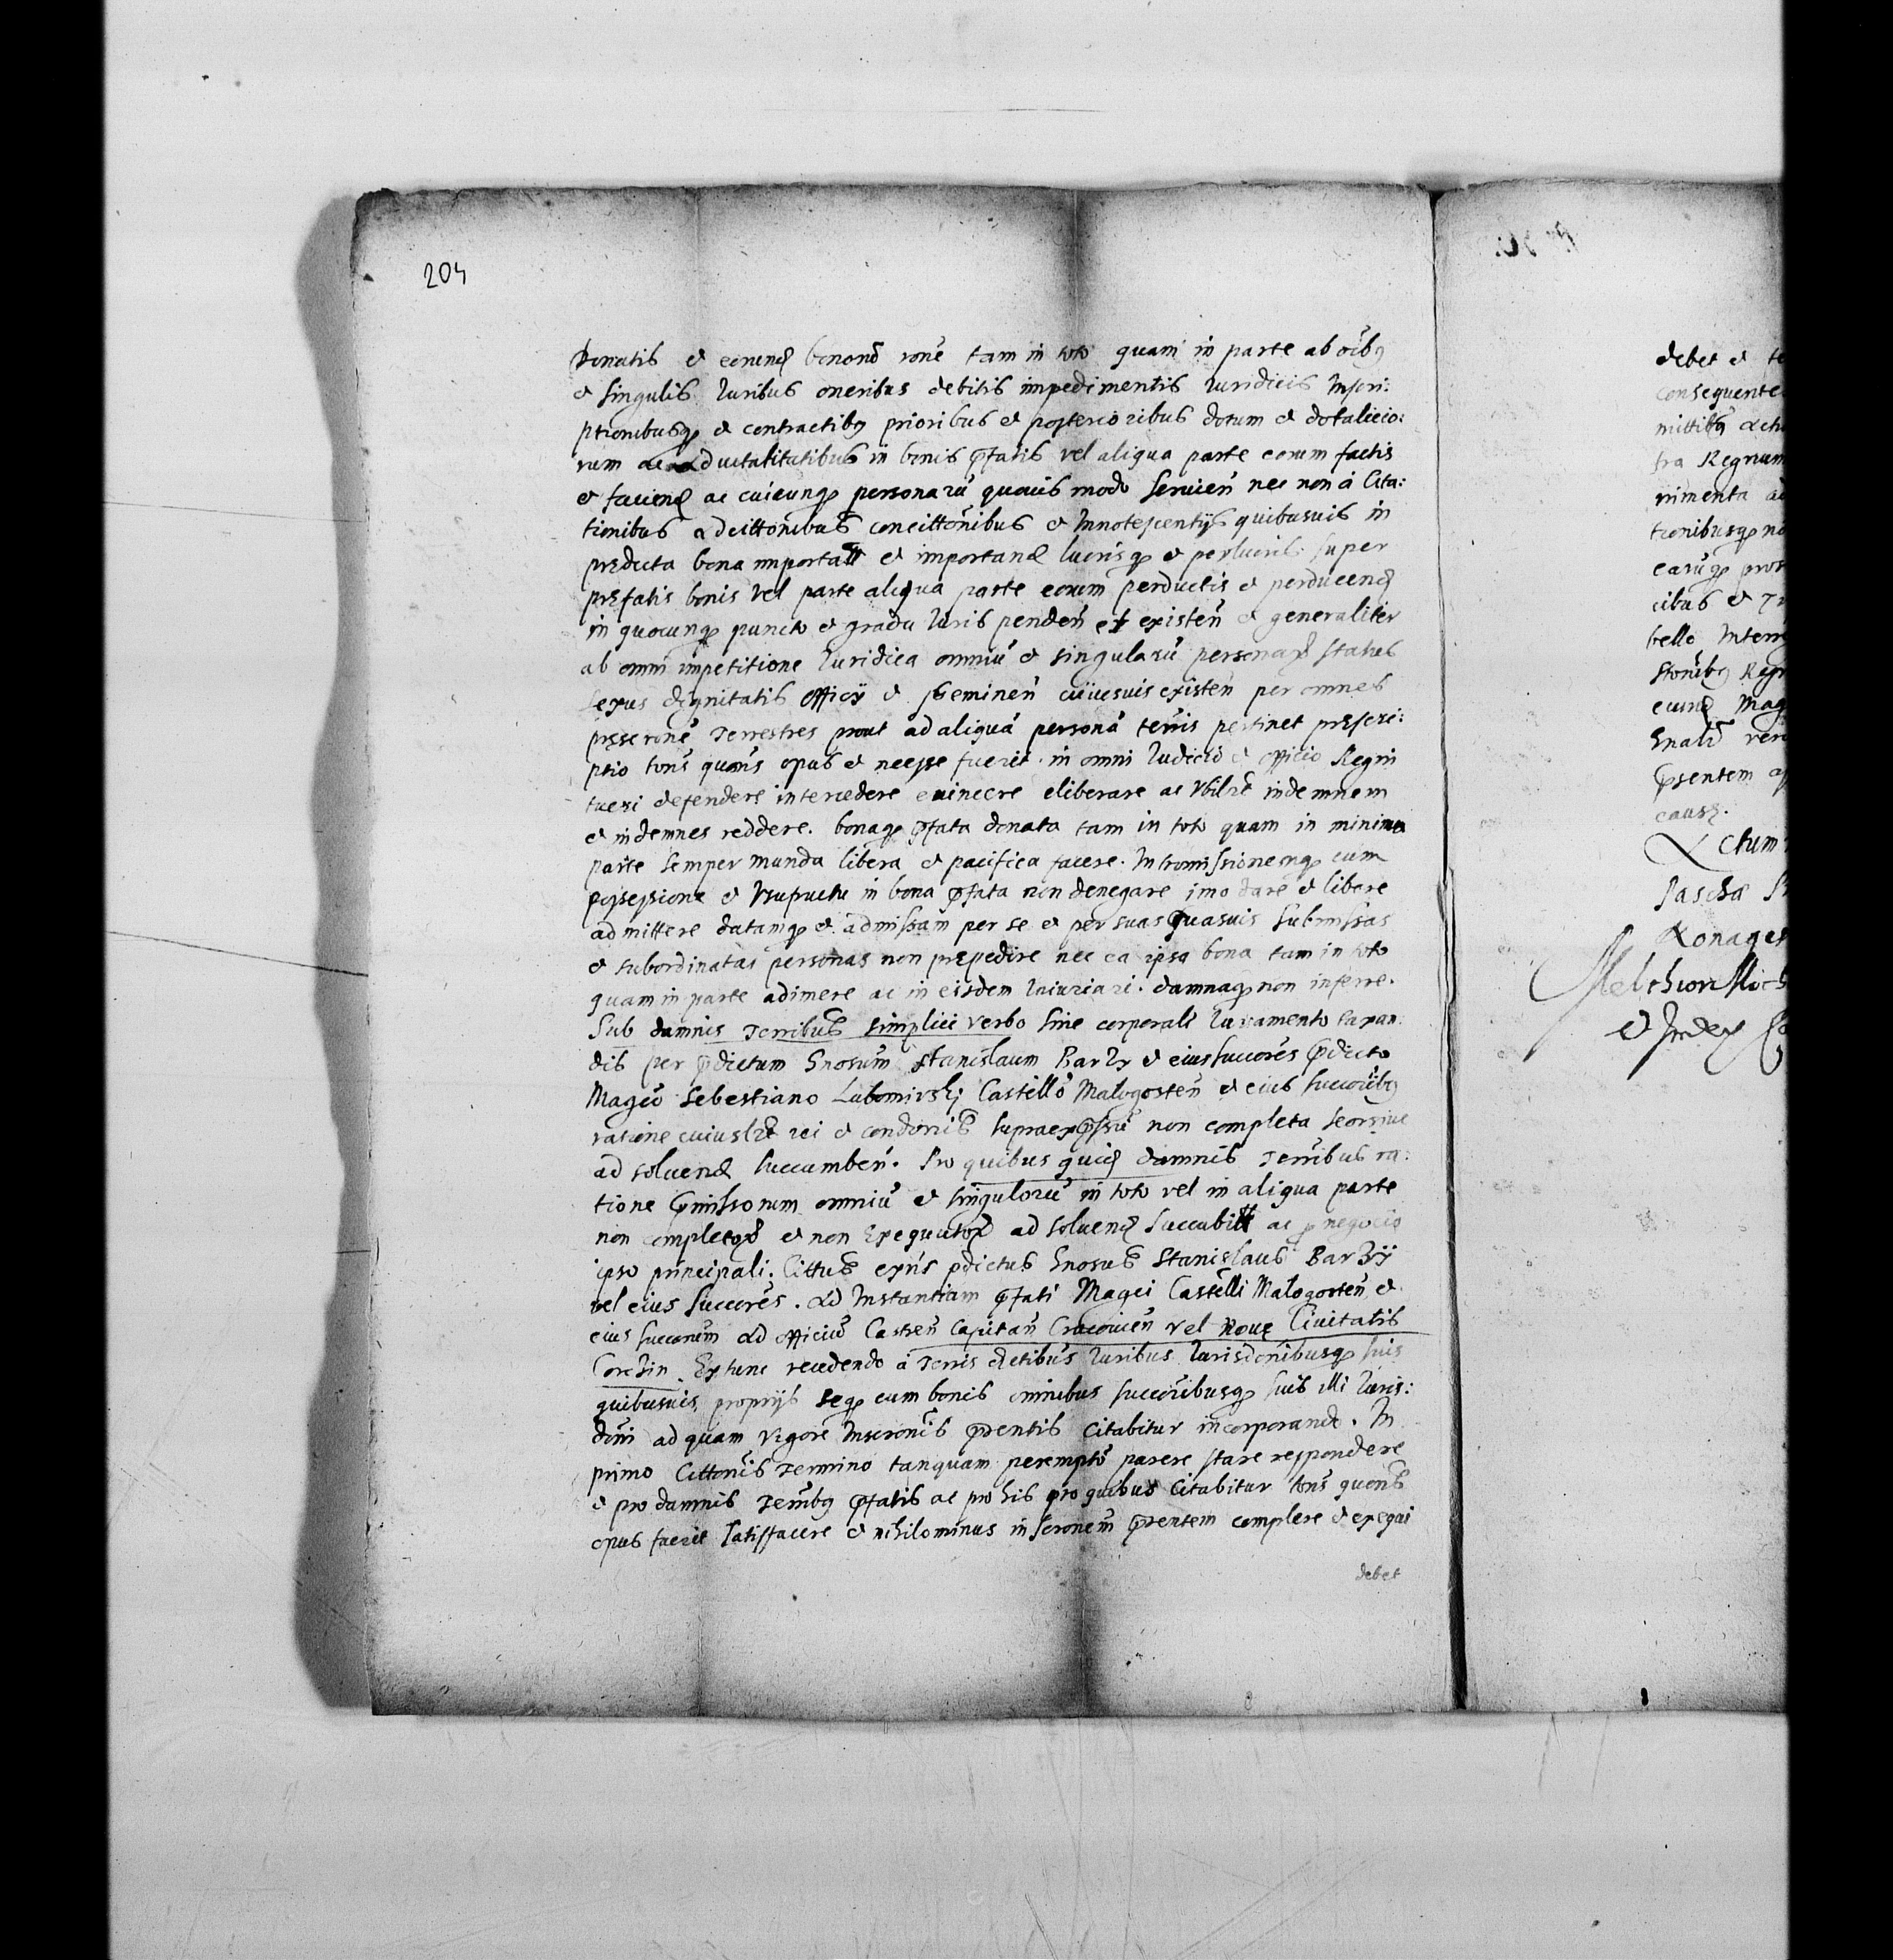 204
Donatis et eorund bonorū rone tam in toto quam in parte ab oībq
et singulis Iuribus oneribus debitis impedimentis Iuridicis Inscri:
ptionibusq et contractibq prioribus et posterioribus dotum et dotalicio:
rum ac aduitalitatibus in bonis pfatis vel aliqua parte eorum factis
et faciend ac cuicunq personarū quouis modo seruieñ nec non à Cita:
tionibus adcittōnibus concittōnibus et Innotescentijs quibusuis in
prędicta bona importatt et importand lucrisq et perlucris super
pręfatis bonis vel parte aliqua parte eorum perductis et perducend
in quocunq puncto et gradu Iuris pendeñ et existeñ et generaliter
ab omni impetitione Iuridica omniū et singularū personarū status
sexus dignitatis officÿ et pęemineñ cuiusuis existeñ per omnes
pręscrōnē Terrestres prout ad aliquā personā terris pertinet pręscri:
ptio tōns quōns opus et necesse fuerit. in omni Iudicio et officio Regni
tueri defendere intercedere euincere eliberare ac vbilƶ indemnem
et indemnes reddere. bonaq pfata donata tam in toto quam in minima
parte semper munda libera et pacifica facere. Intromissionemq cum
possessione et Vsufructu in bona pfata non denegare imo dare et libere
admittere datamq et admissam per se et per suas quasuis submissas
et subordinatas personas non prępedire nec ea ipsa bona tam in toto
quam in parte adimere ac in eisdem iniuriari. damnaq non inferre.
Sub damnis terribus simplici verbo sine corporali Iuramento taxan:
dis per pdictum Gnosum Stanislaum Barzy et eius succōres pdicto
Magco Sebestiano Lubomirski Castellō Małogosteñ et eius succoribq
ratione cuiuslƶ rei et condōnis supraexpssū non completa seorsiue
ad soluend succumbeñ. Pro quibus quid damnis terribus ra:
tione pmissorum omniū et singulorū in toto vel in aliqua parte
non completorū et non Exequutorū ad soluend succubitt ac p negocio
ipso principali. Cittus exñs pdictus Gnosus Stanislaus Barzÿ
vel eius succōres. ad Instantiam pfati Magci Castelli Małogosteñ et
eius succorum ad officiū Castreñ Capitañ Cracouieñ vel Nouę Ciuitatis
Corchin. Extunc recedendo à Terris dictibus Iuribus Iurisdōnibusq suis
quibusuis proprijs seq cum bonis omnibus succōribusq suis illi Iuris:
dōni ad quam vigore Inscrōnis pñtentis Citabitur incorporando. In
primo Cittōnis Termino tanquam peremptō parere stare respondere
et pro damnis terribq pfatis ac pro his pro quibus Citabitur tōns quōns
opus fuerit satisfacere et nihilominus inscrōnem pñtentem complere et exequi
debet
debet et
consequente
mittibq
tra Regnum
nimenta
tionibusq
earuq
cibus et
bello
stōnibq
eund Mag
Gnali
psentem
causę.
Actum
Pascha
Melchior
et Index